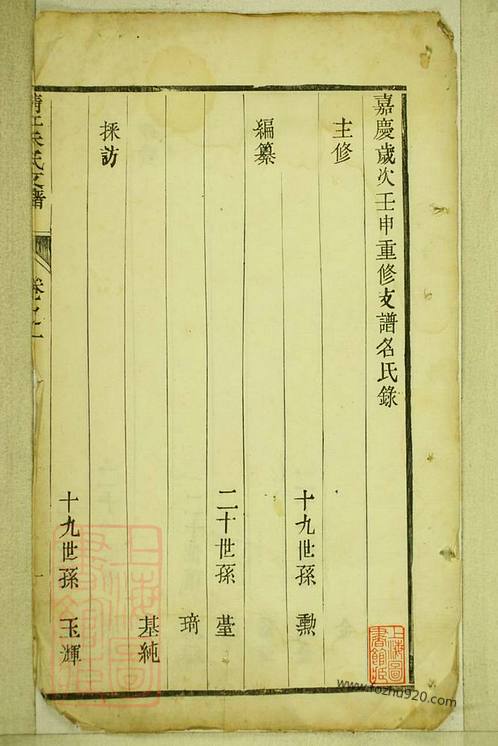 嘉慶歲次壬申重修支譜名氏錄
主修
十九世孫 勲
編纂
二十世孫 堇
琦
基純
採訪
十九世孫 玉輝
氏支譜
卷之一
上海圖書館藏
www.fozhu920.com